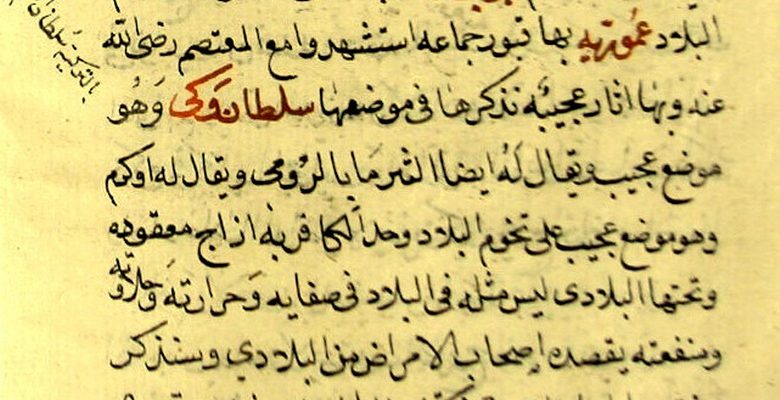 البلاد عموريه بها قبور جماعه استشهدوا مع المعتصم رضى الله
عنه وبها اثار عجيبه نذكرها فى موضعها سلطان وكى وهو
موضع عجيب ويقال له ايضا الثرما بالرومى ويقال له اوكرم
وهو موضع عجيب على تخوم البلاد وحد الكافر به ازاج معقوده
وتحتها البلادى ليس مثله فى البلاد فى صفايه وحرارته وحلاوته
ومنفعته يقصده اصحاب الامراض من البلادي وسنذكر
بالتركية سلطان